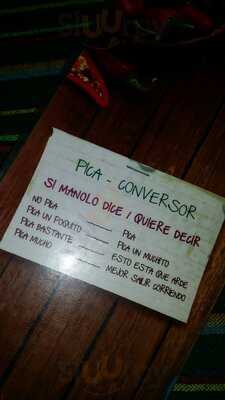 PICA - CONVERSOR
SI MANOLO DICE / QUIERE DECIR
NO PICA ______ PICA
PICA UN POQUITO ______ PICA UN MUCHITO
PICA BASTANTE ______ ESTO ESTA QUE ARDE
PICA MUCHO ______ MEJOR SALIR CORRIENDO